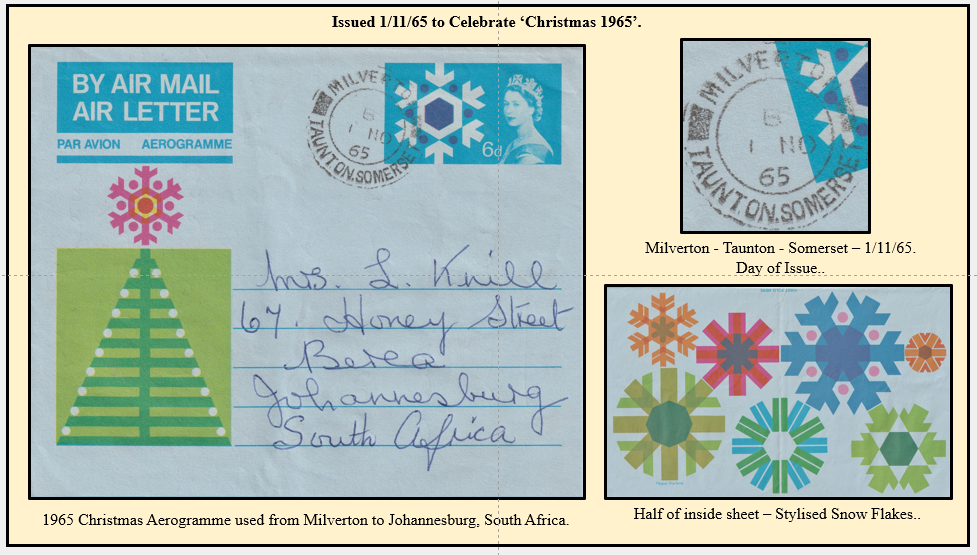 Issued 1/11/65 to Celebrate ‘Christmas 1965’.
BY AIR MAIL
AIR LETTER
PAR AVION AEROGRAMME
MILVERTON
B
1 NO
65
TAUNTON.SOMERSET
6d
Mrs. L. Knill
67. Honey Street
Berea
Johannesburg
South Africa
1965 Christmas Aerogramme used from Milverton to Johannesburg, South Africa.
MILVERTON
1 NO
65
TAUNTON.SOMERSET
Milverton - Taunton - Somerset – 1/11/65.
Day of Issue..
Half of inside sheet – Stylised Snow Flakes..